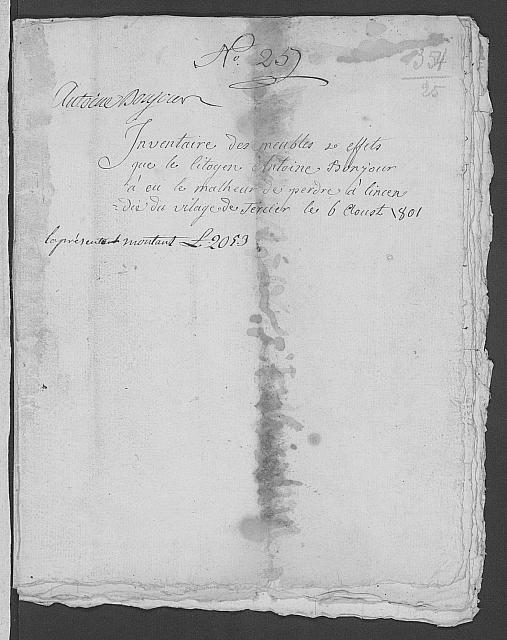 No. 25
354
25
Antoine Bonjour
Inventaire des meubles & effets
que le Citoyen Antoine Bonjour
à eu le malheur de perdre à lincen
die du vilage de le 6 Aoust 1801
la présente montant L. 2053